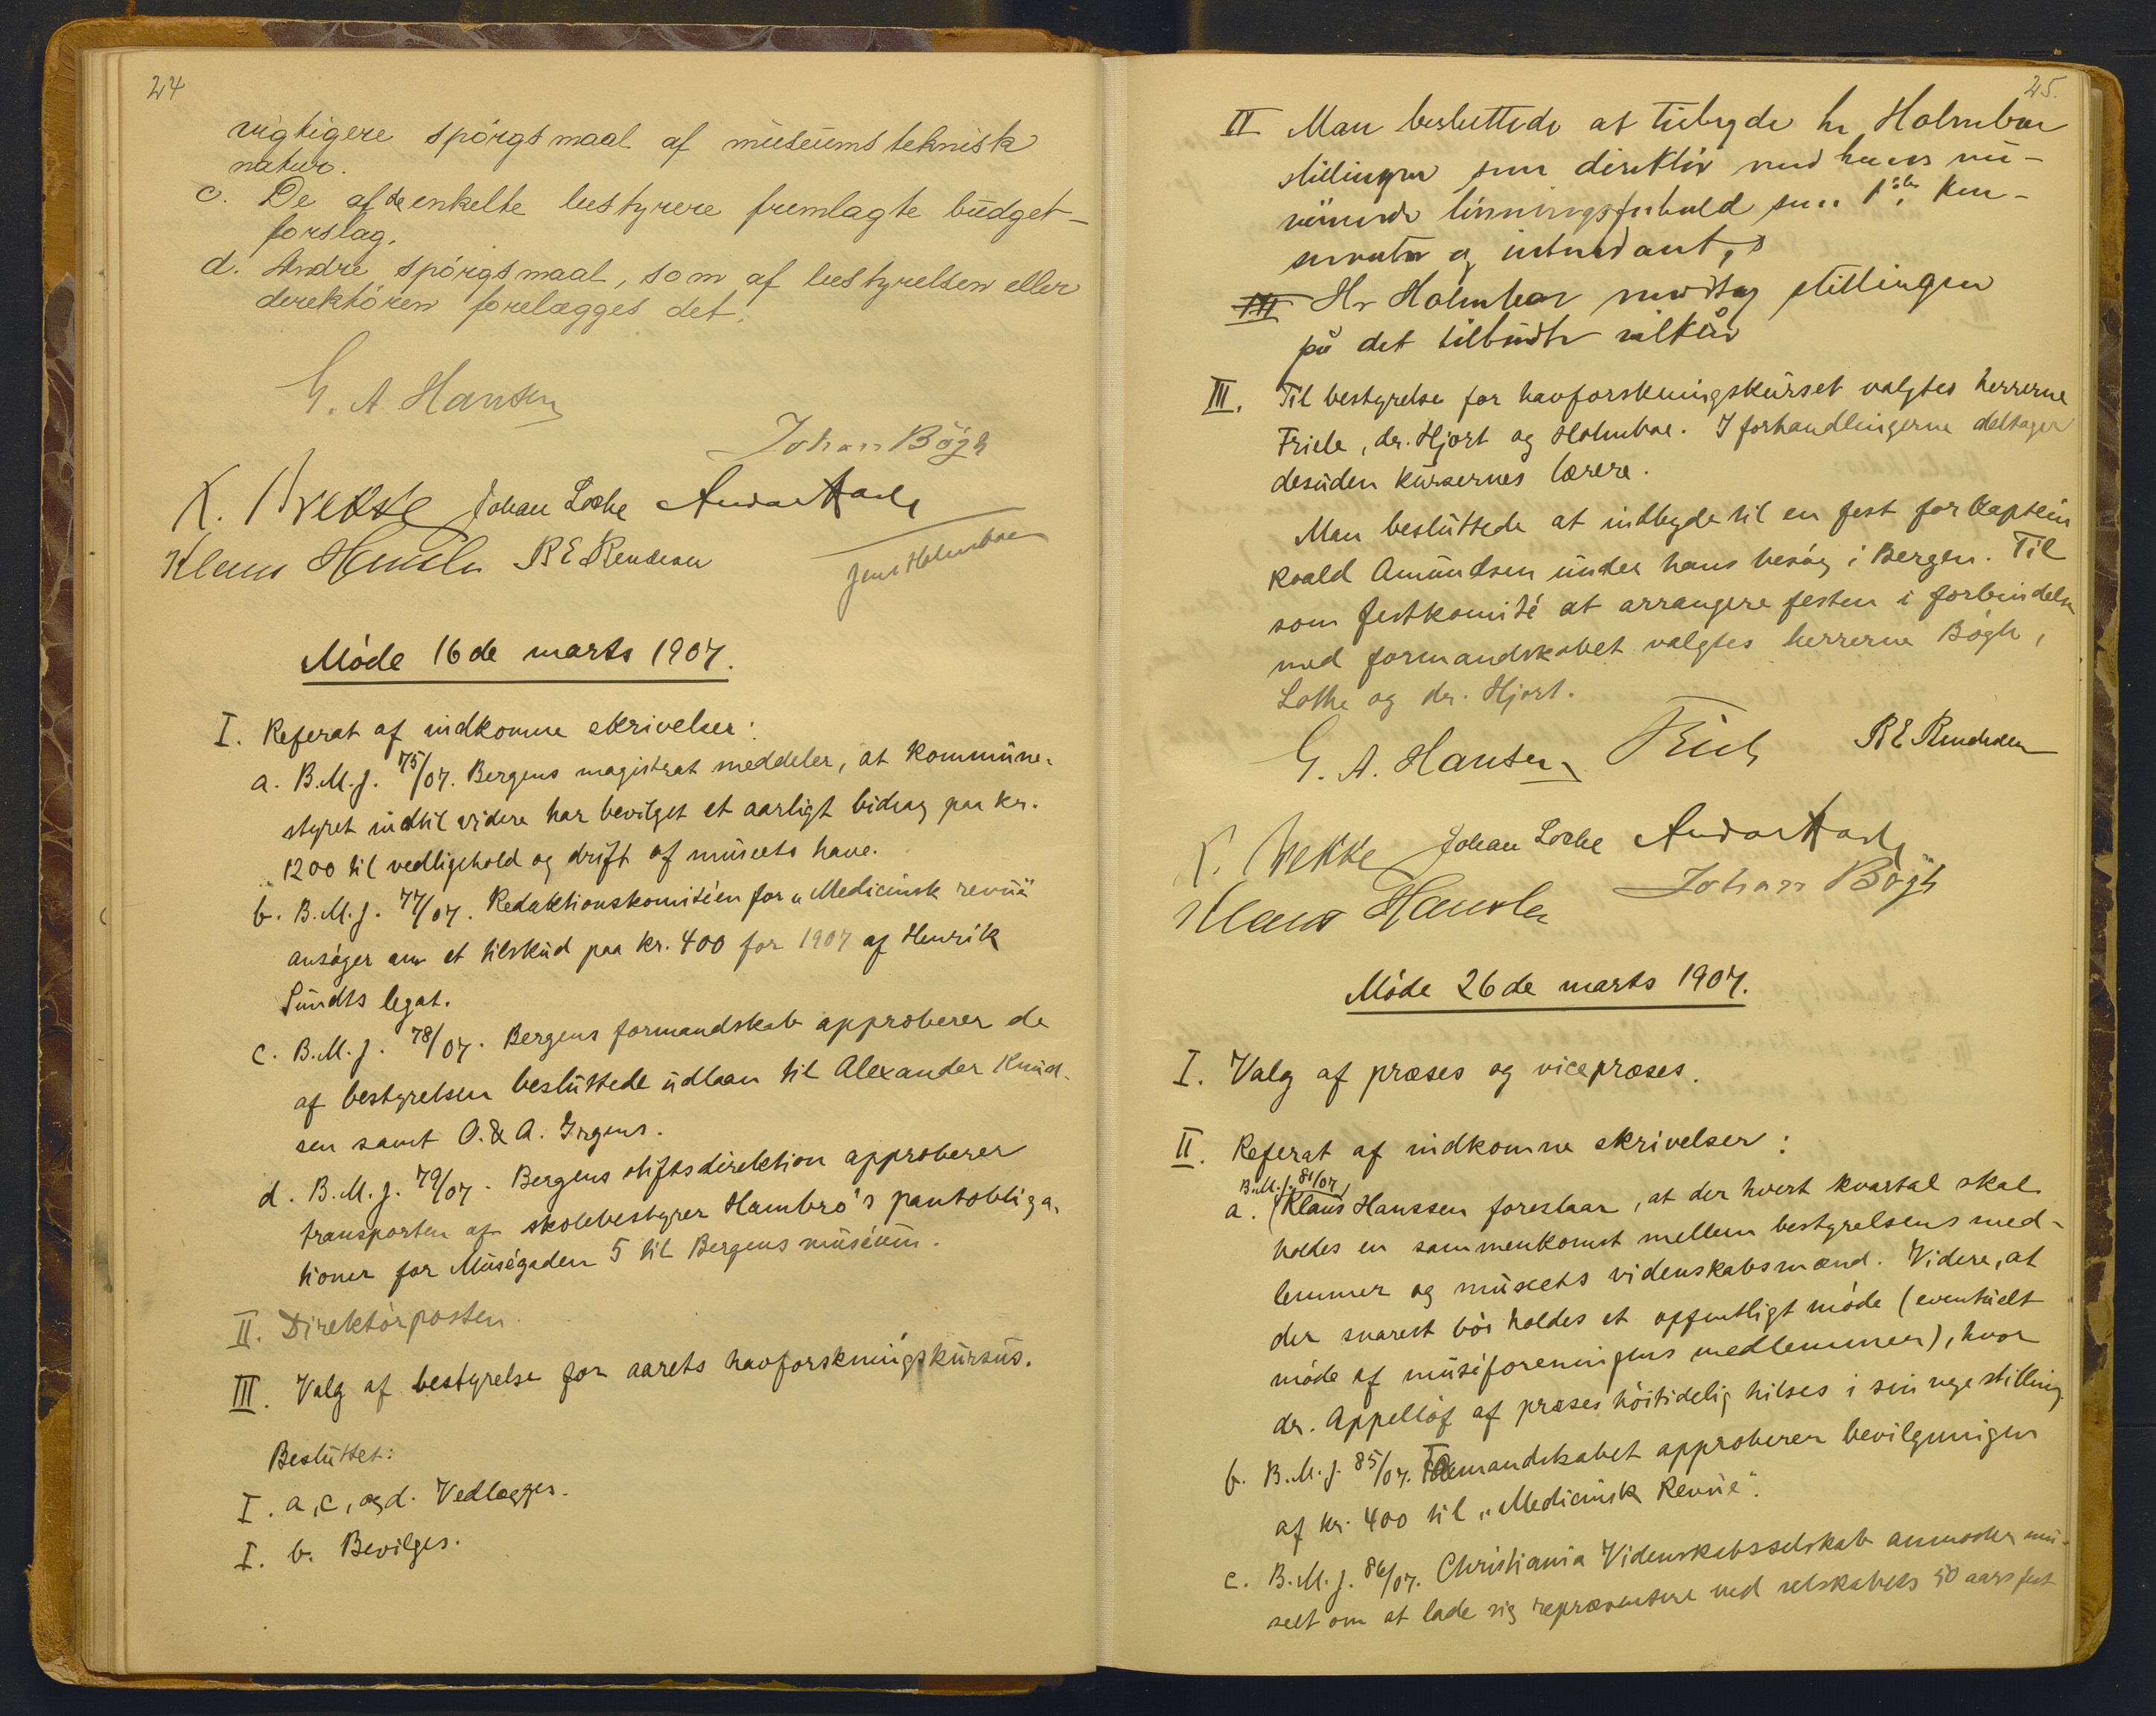 24
vigtigere spörgsmaal af museumsteknisk
natur.
c. De af de enkelte bestyrere fremlagte budget-
forslag.
d. Andre spörgsmaal, som af bestyrelsen eller
direktören forelægges det.
G. A Hansen
Johan Bögh
K. Brekke Johan Lothe
Klaus Hanssen R E Rendesen
Jens Holmboe
Möde 16de marts 1907.
I. Referat af indkomne skrivelser:
a. B.M.J. 75/07. Bergens magistrat meddeler, at kommune-
styret indtil videre har bevilget et aarligt bidrag paa kr.
1200 til vedligehold og drift af museets have.
b. B.M.J. 77/07. Redaktionskomitéen for „Medicinsk revue"
ansöger om et tilskud paa kr. 400 for 1907 af Henrik
Sundts legat.
c. B.M.J. 78/07. Bergens formandskab approberer de
af bestyrelsen besluttede udlaan til Alexander Knud-
sen samt O. & A. Irgens.
d. B.M.J. 79/07. Bergens stiftsdirektion approberer
transporten af skolebestyrer Hambro's pantobliga-
tioner for Muségaden 5 til Bergens muséum.
II. Direktörposten.
III. Valg af bestyrelse for aarets havforskningskursus.
Besluttet:
I. a, c, og d. Vedlægges.
I. b. Bevilges.
25.
II Man besluttede at tilbyde hr Holmboe
stillingen som direktör med hans nu-
værende lönningsforhold som kon-
servator og intendant,
III Hr Holmboe modtog stillingen
på det tilbudte vilkår
III. Til bestyrelse for havforskningskurset valgtes herrerne
Friele, dr. Hjort og Holmboe. I forhandlingerne deltager
desuden kursernes lærere.
Man besluttede at indbyde til en fest for kaptein
Roald Amundsen under hans besög i Bergen. Til
som festkomité at arrangere festen i forbindelse
med formandskabet valgtes herrerne Bögh,
Lothe og dr. Hjort.
G. A. Hansen Friele R E Rendesen
K. Brekke Johan Lothe
Klaus Hanssen Johan Bögh
Möde 26de marts 1907.
I. Valg af præses og vicepræses.
II. Referat af indkomne skrivelser:
B.M.J. 81/07
a. (Klaus Hanssen foreslaar, at der hvert kvartal skal
holdes en sammenkomst mellem bestyrelsens med-
lemmer og museets videnskabsmænd. Videre, at
der snarest bör holdes et offentligt möde (eventuelt
möde af muséforeningens medlemmer), hvor
dr. Appellöf af præses höitidelig hilses i sin nye stilling.
b. B.M.J. 85/07. Formandskabet approberer bevilgningen
af kr. 400 til „Medicinsk Revue".
c. B.M.J. 86/07. Christiania Videnskabsselskab anmoder mu-
seet om at lade sig repræsentere ved selskabets 50 aars fest